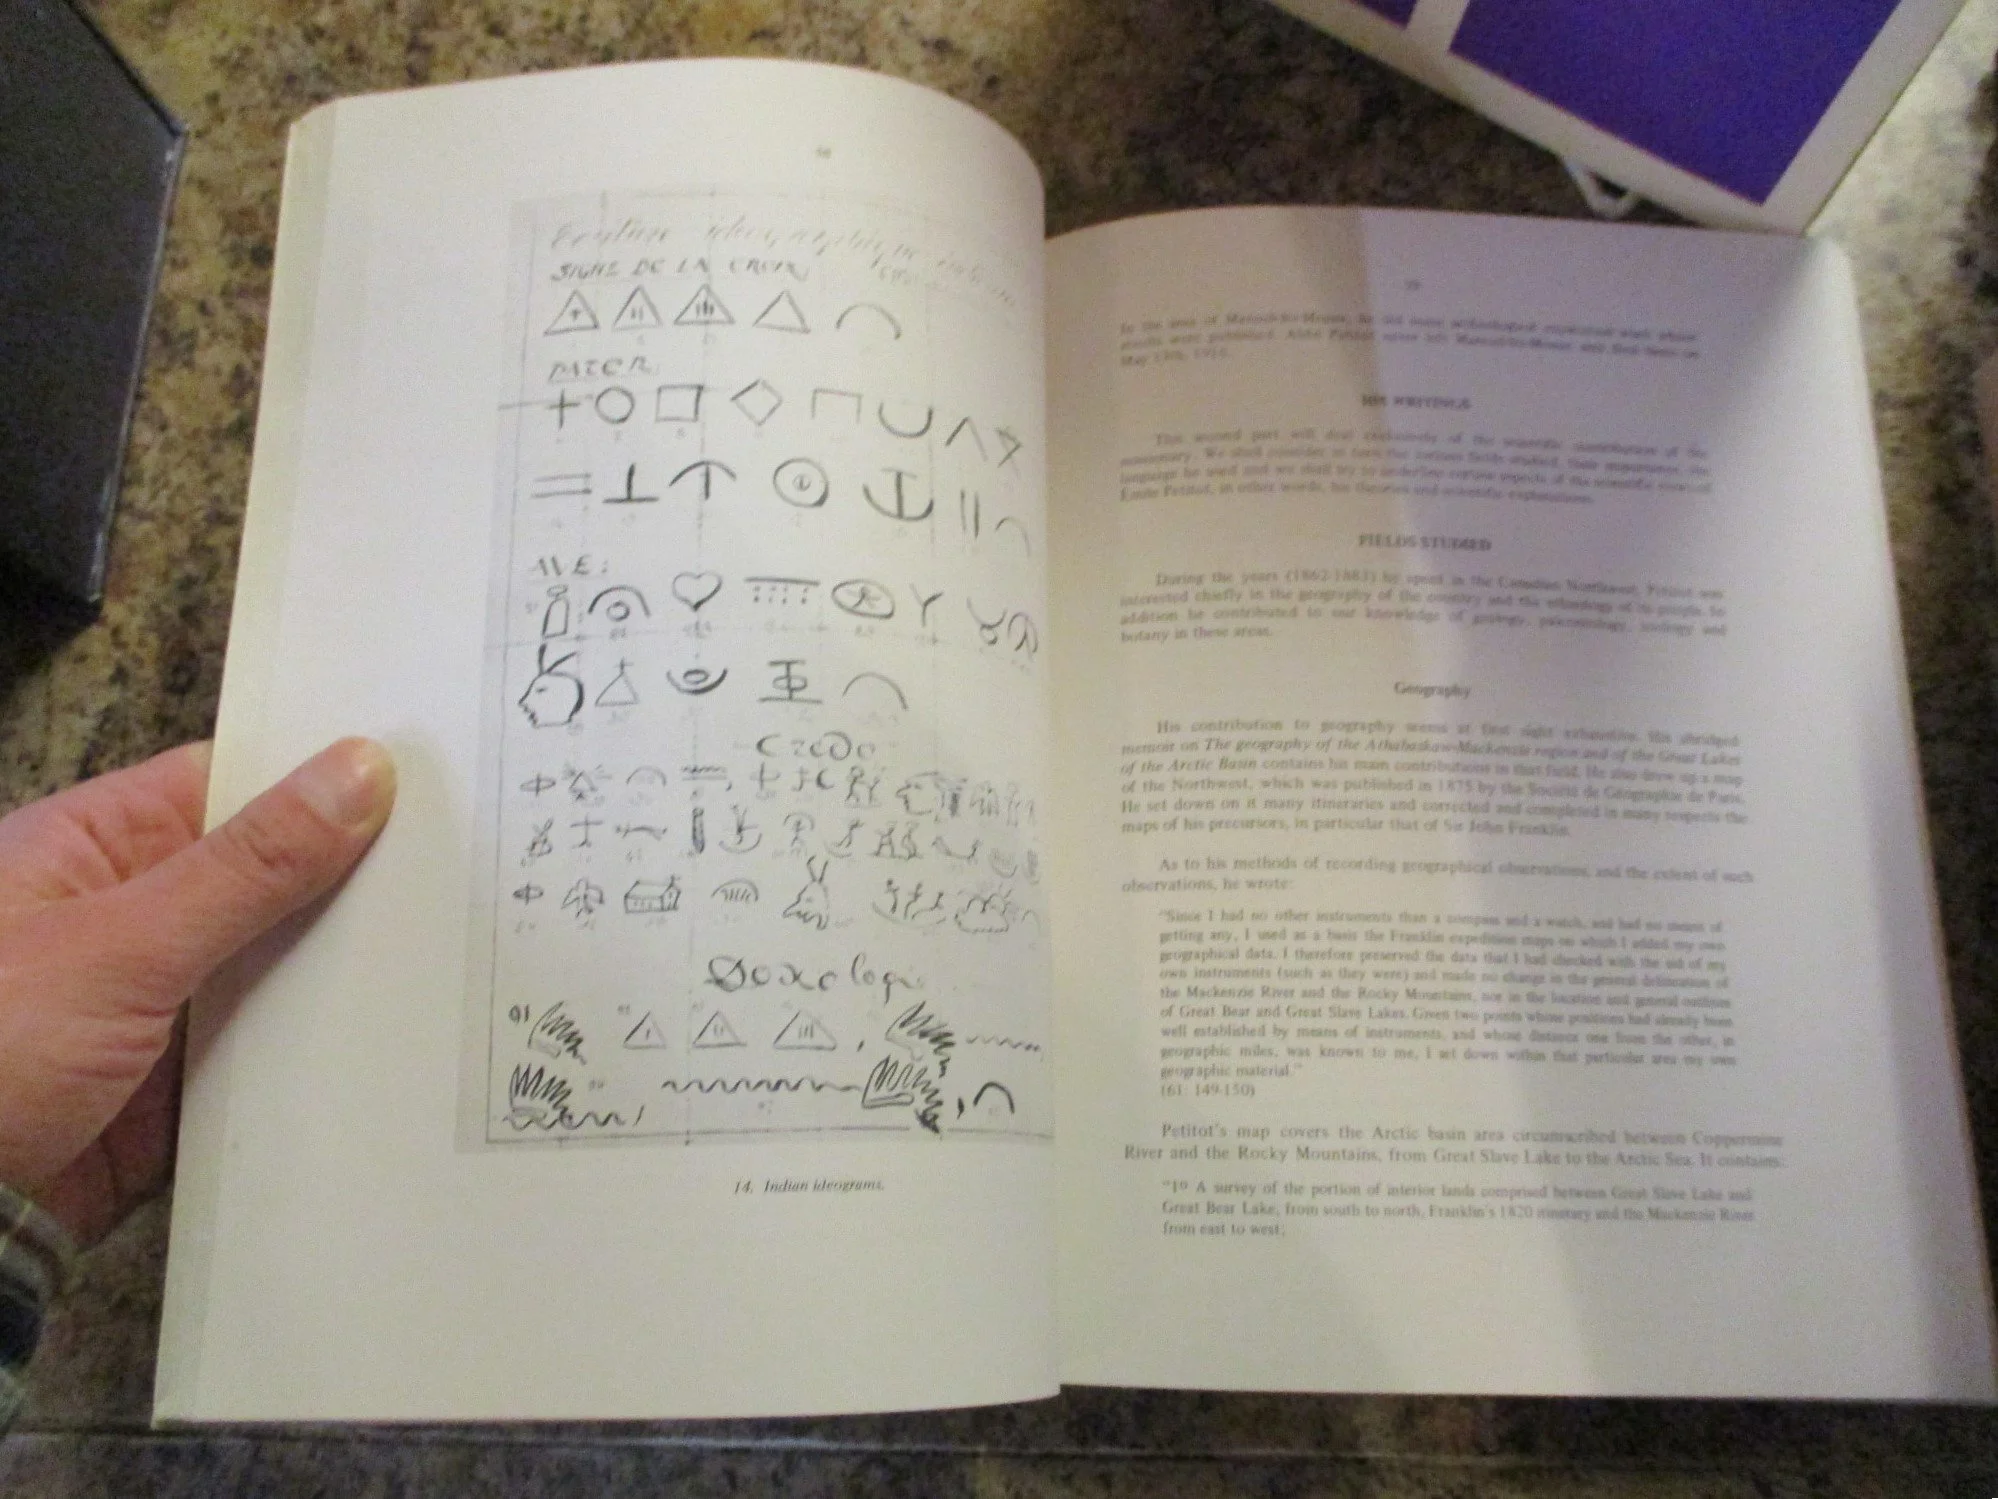 SIGNE DE LA CROIX
PATER
AVE:
Credo
Doxologi
91
14. Indian ideograms.
In the area of Mareuil-lès-Meaux, he did some archeological
May 13th, 1916.
HIS WRITINGS
This second part will deal exclusively of the scientific contribution of the
missionary. We shall consider in turn the various fields studied, their importance, the
language he used and we shall try to underline certain aspects of the scientific views of
Emile Petitot, in other words, his theories and scientific explanations.
FIELDS STUDIED
During the years (1862-1883) he spent in the Canadian Northwest, Petitot was
interested chiefly in the geography of the country and the ethnology of its people. In
addition he contributed to our knowledge of geology, paleontology, zoology and
botany in these areas.
Geography
His contribution to geography seems at first sight exhaustive. His abridged
memoir on The geography of the Athabaskaw-Mackenzie region and of the Great Lakes
of the Arctic Basin contains his main contributions in that field. He also drew up a map
of the Northwest, which was published in 1875 by the Société de Géographie de Paris.
He set down on it many itineraries and corrected and completed in many respects the
maps of his precursors, in particular that of Sir John Franklin.
As to his methods of recording geographical observations, and the extent of such
observations, he wrote:
"Since I had no other instruments than a compass and a watch, and had no means of
getting any, I used as a basis the Franklin expedition maps on which I added my own
geographical data. I therefore preserved the data that I had checked with the aid of my
own instruments (such as they were) and made no change in the general delineation of
the Mackenzie River and the Rocky Mountains, nor in the location and general outlines
of Great Bear and Great Slave Lakes. Given two points whose positions had already been
well established by means of instruments, and whose distance one from the other, in
geographic miles, was known to me, I set down within that particular area my own
geographic material."
(61: 149-150)
Petitot's map covers the Arctic basin area circumscribed between Coppermine
River and the Rocky Mountains, from Great Slave Lake to the Arctic Sea. It contains:
"1º A survey of the portion of interior lands comprised between Great Slave Lake and
Great Bear Lake, from south to north, Franklin's 1820 itinerary and the Mackenzie River
from east to west;